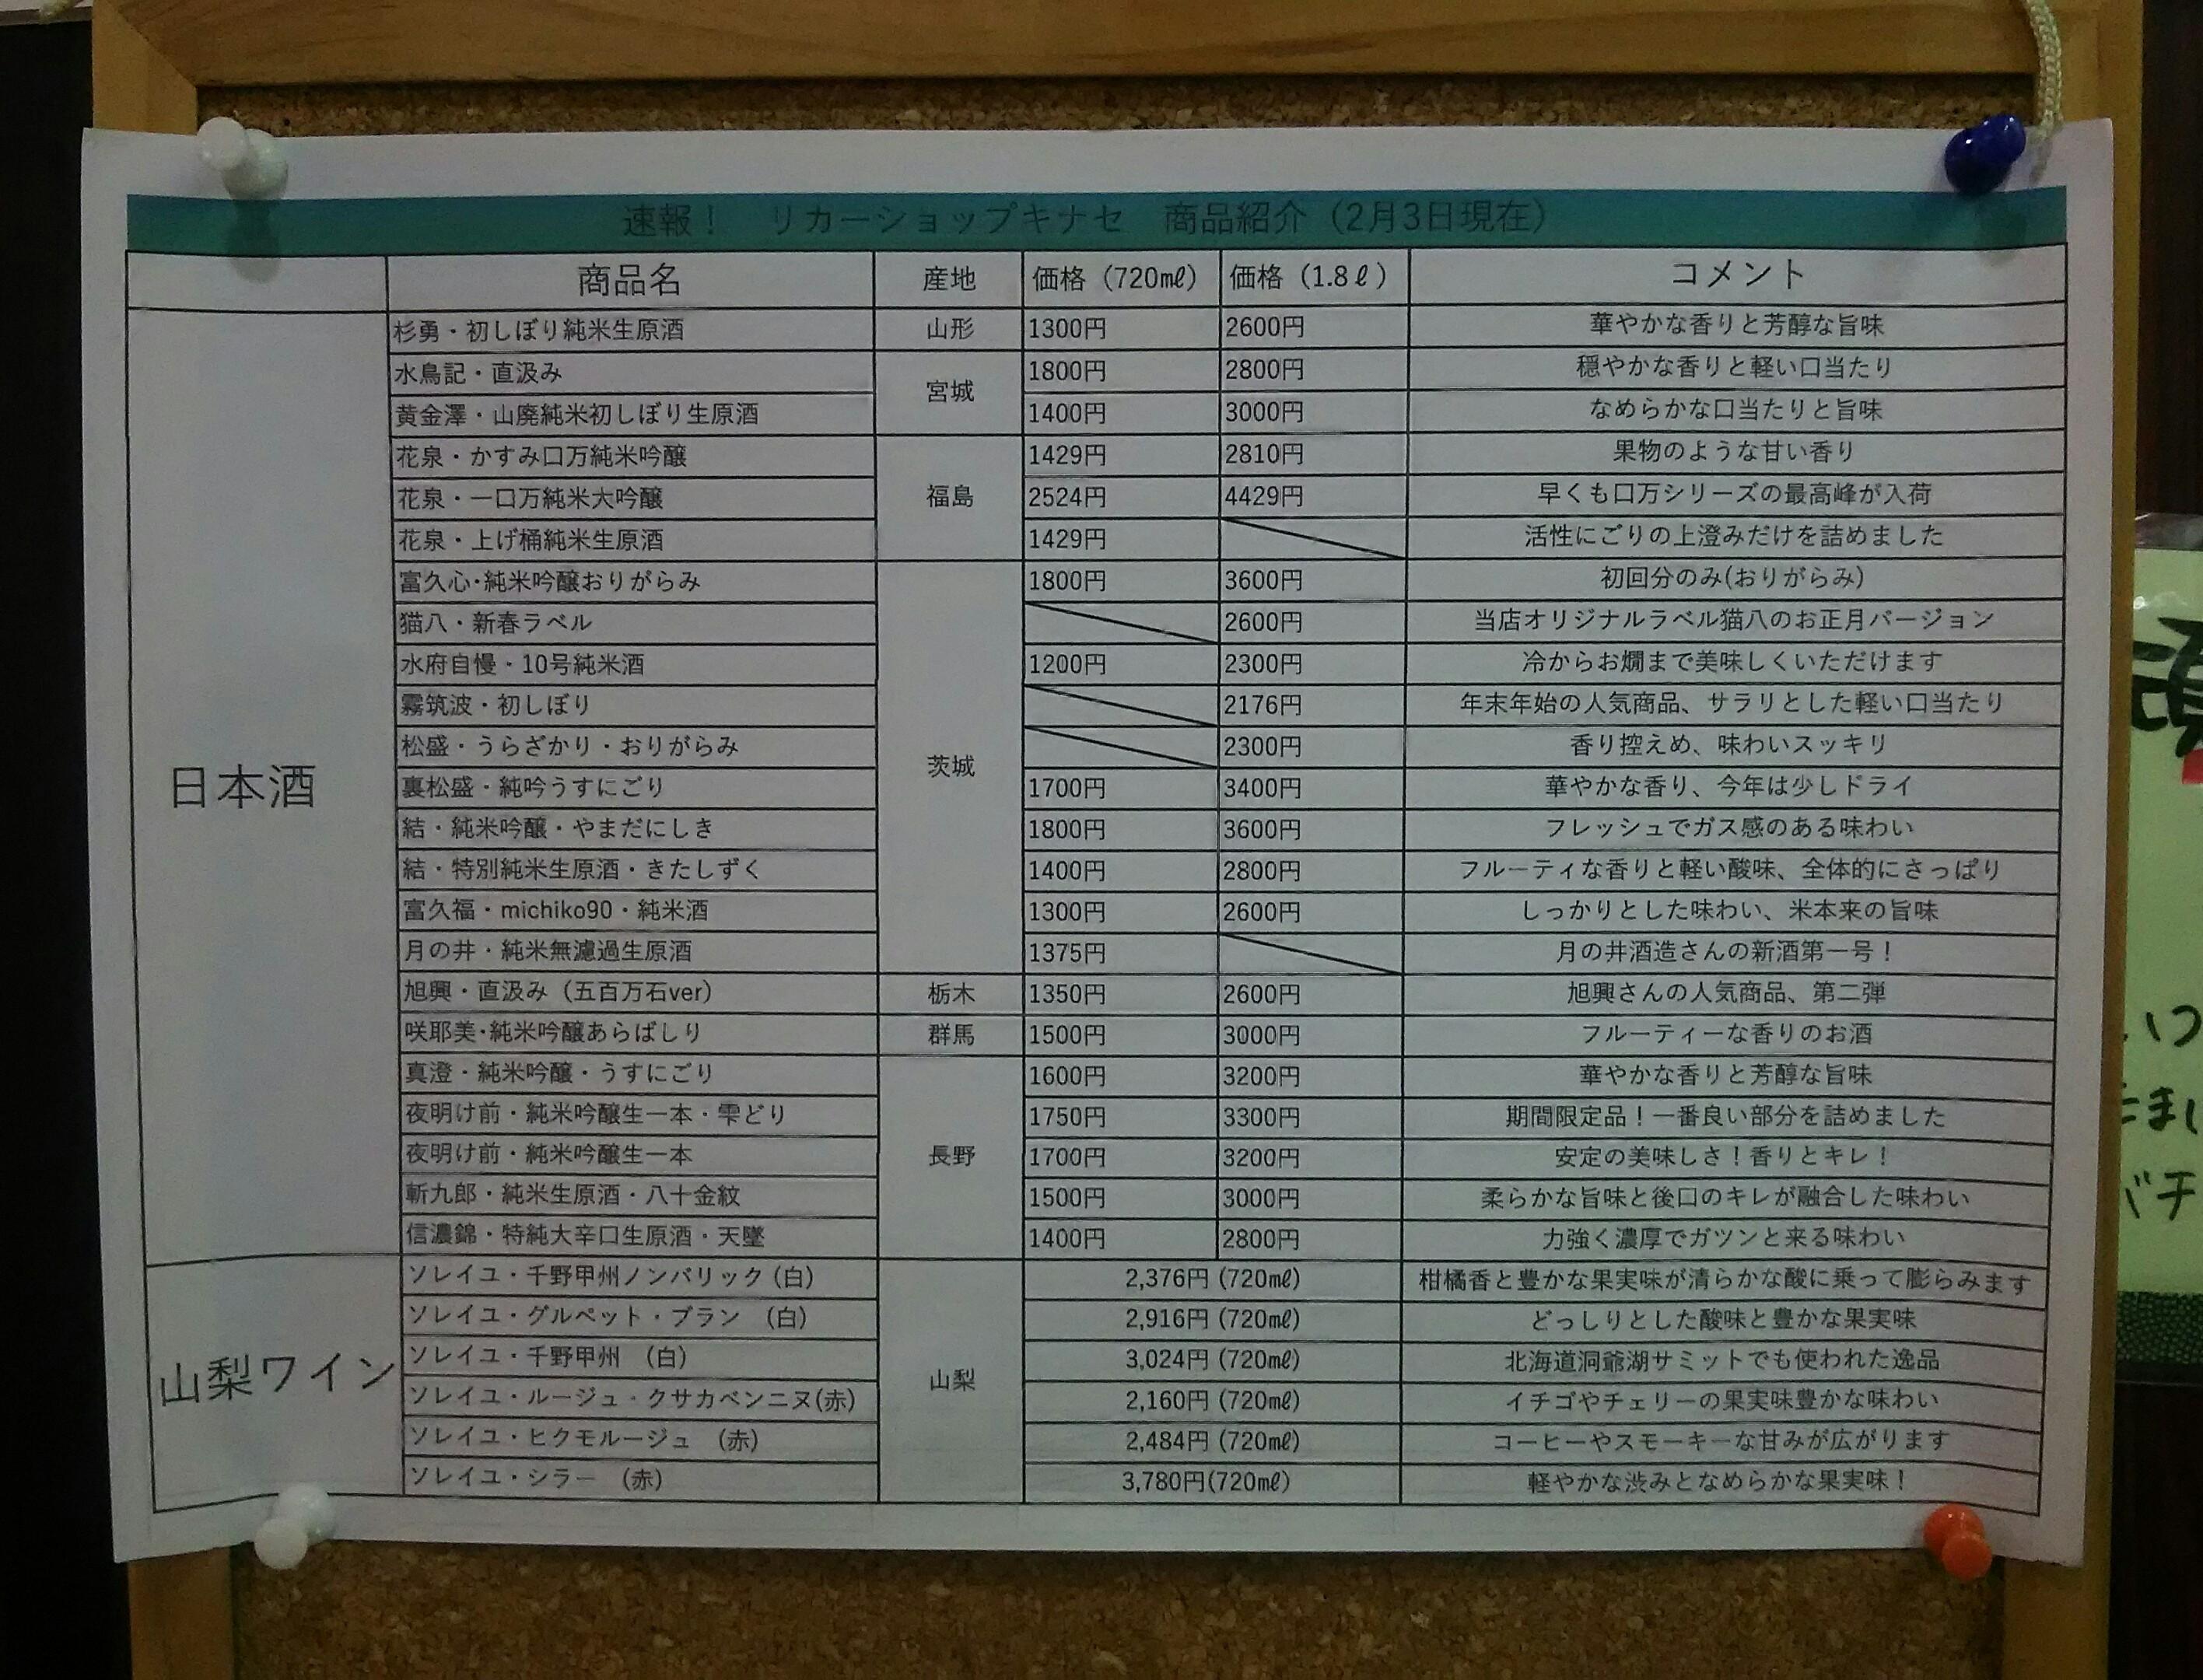 速報！　リカーショップキナセ　商品紹介（2月3日現在）
商品名 産地 価格（720㎖） 価格（1.8ℓ） コメント
日本酒
杉勇・初しぼり純米生原酒 山形 1300円 2600円 華やかな香りと芳醇な旨味
水鳥記・直汲み 宮城 1800円 2800円 穏やかな香りと軽い口当たり
黄金澤・山廃純米初しぼり生原酒 1400円 3000円 なめらかな口当たりと旨味
花泉・かすみ口万純米吟醸 福島 1429円 2810円 果物のような甘い香り
花泉・一口万純米大吟醸 2524円 4429円 早くも口万シリーズの最高峰が入荷
花泉・上げ桶純米生原酒 1429円 活性にごりの上澄みだけを詰めました
富久心･純米吟醸おりがらみ 茨城 1800円 3600円 初回分のみ(おりがらみ)
猫八・新春ラベル 2600円 当店オリジナルラベル猫八のお正月バージョン
水府自慢・10号純米酒 1200円 2300円 冷からお燗まで美味しくいただけます
霧筑波・初しぼり 2176円 年末年始の人気商品、サラリとした軽い口当たり
松盛・うらざかり・おりがらみ 2300円 香り控えめ、味わいスッキリ
裏松盛・純吟うすにごり 1700円 3400円 華やかな香り、今年は少しドライ
結・純米吟醸・やまだにしき 1800円 3600円 フレッシュでガス感のある味わい
結・特別純米生原酒・きたしずく 1400円 2800円 フルーティな香りと軽い酸味、全体的にさっぱり
富久福・michiko90・純米酒 1300円 2600円 しっかりとした味わい、米本来の旨味
月の井・純米無濾過生原酒 1375円 月の井酒造さんの新酒第一号！
旭興・直汲み（五百万石ver） 栃木 1350円 2600円 旭興さんの人気商品、第二弾
咲耶美･純米吟醸あらばしり 群馬 1500円 3000円 フルーティーな香りのお酒
真澄・純米吟醸・うすにごり 長野 1600円 3200円 華やかな香りと芳醇な旨味
夜明け前・純米吟醸生一本・雫どり 1750円 3300円 期間限定品！一番良い部分を詰めました
夜明け前・純米吟醸生一本 1700円 3200円 安定の美味しさ！香りとキレ！
斬九郎・純米生原酒・八十金紋 1500円 3000円 柔らかな旨味と後口のキレが融合した味わい
信濃錦・特純大辛口生原酒・天墜 1400円 2800円 力強く濃厚でガツンと来る味わい
山梨ワイン
ソレイユ・千野甲州ノンバリック (白) 山梨 2,376円 (720㎖) 柑橘香と豊かな果実味が清らかな酸に乗って膨らみます
ソレイユ・グルペット・ブラン　(白) 2,916円 (720㎖) どっしりとした酸味と豊かな果実味
ソレイユ・千野甲州　(白) 3,024円 (720㎖) 北海道洞爺湖サミットでも使われた逸品
ソレイユ・ルージュ・クサカベンニヌ(赤) 2,160円 (720㎖) イチゴやチェリーの果実味豊かな味わい
ソレイユ・ヒクモルージュ　(赤) 2,484円 (720㎖) コーヒーやスモーキーな甘みが広がります
ソレイユ・シラー　(赤) 3,780円(720㎖) 軽やかな渋みとなめらかな果実味！